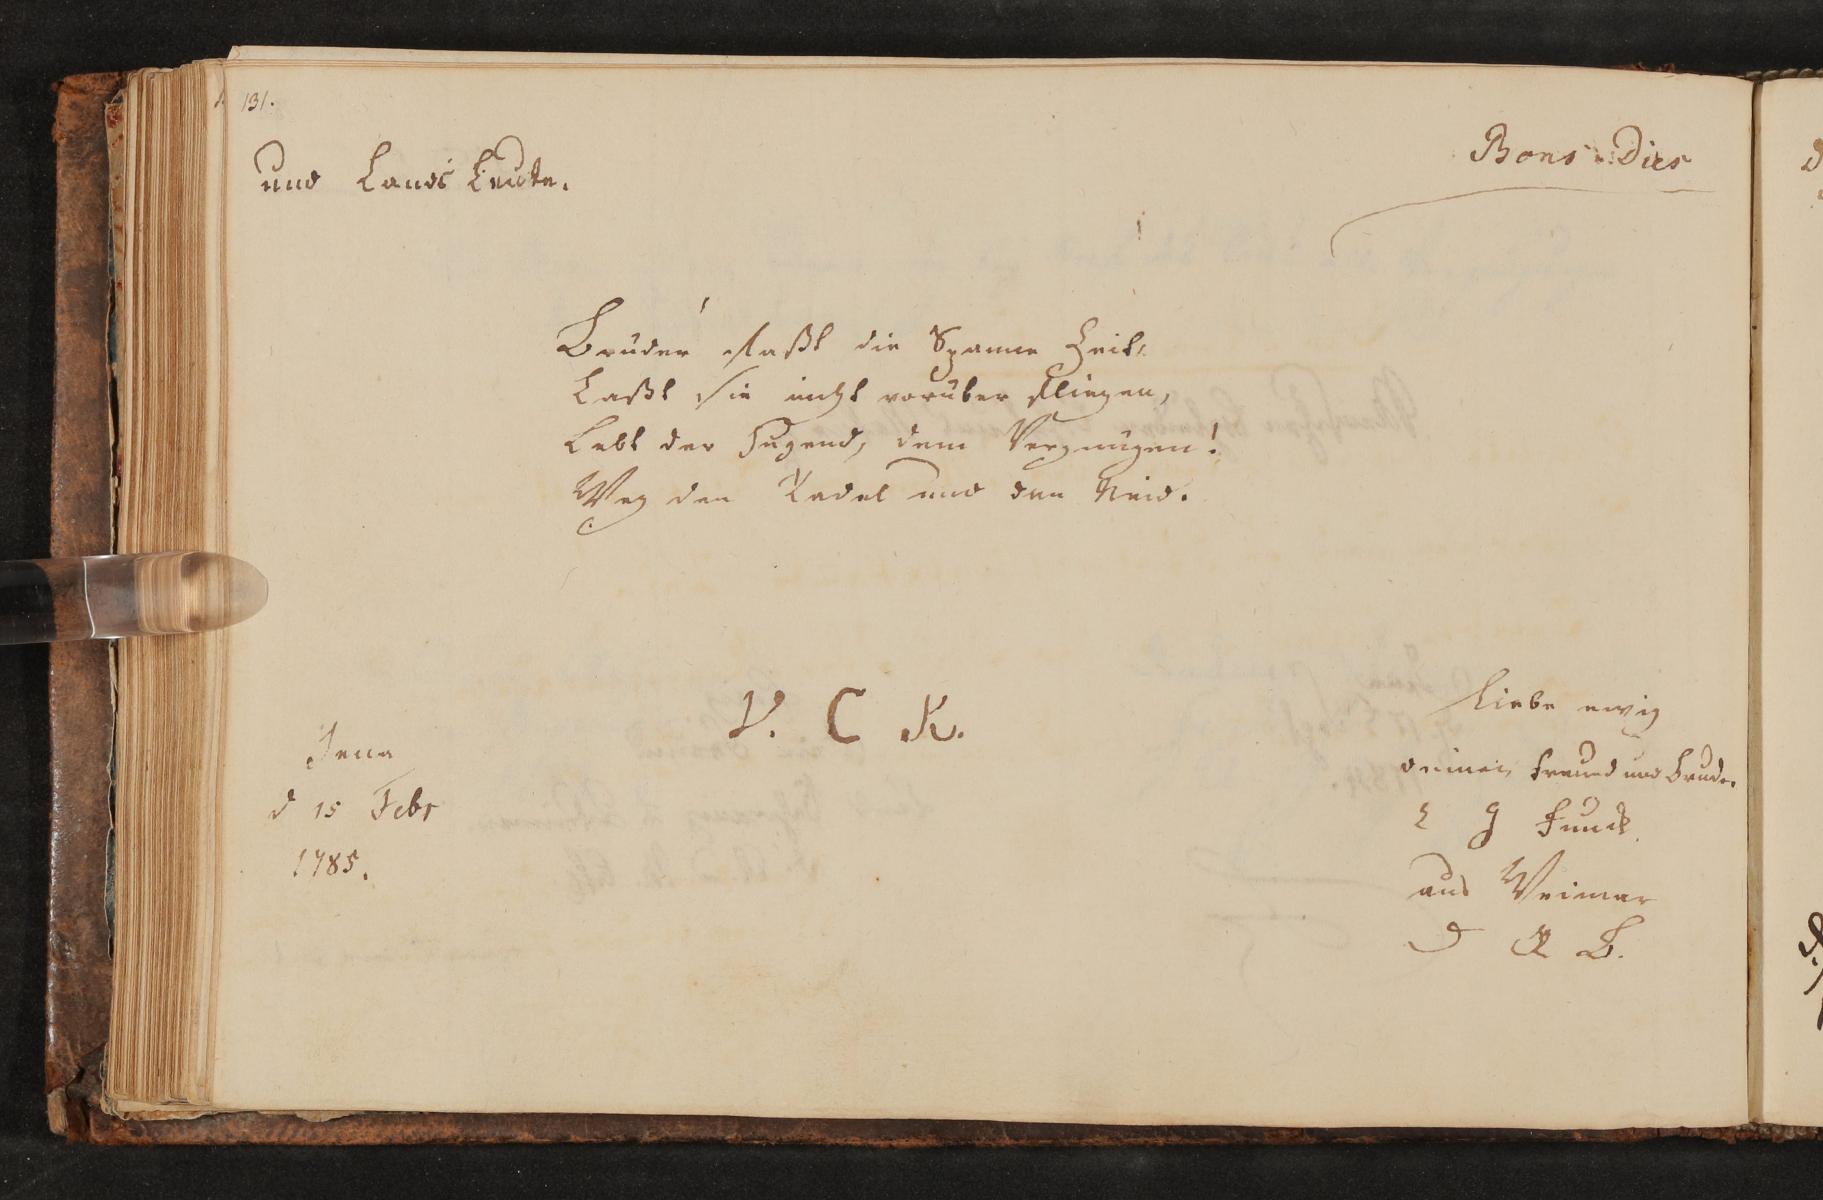 131.
Bons Dies
und Lands Leute.
Brüder! faßt die Spanne Zeit,
Laßt sie nicht vorüber fliegen,
Lebt der Tugend, dem Vergnügen!
Weg den Tadel und den Neid.
V. C K.
Jena
d 15 Febr
1785.
Liebe ewig
deinen Freund und Bruder
L G Funck
aus Weimar